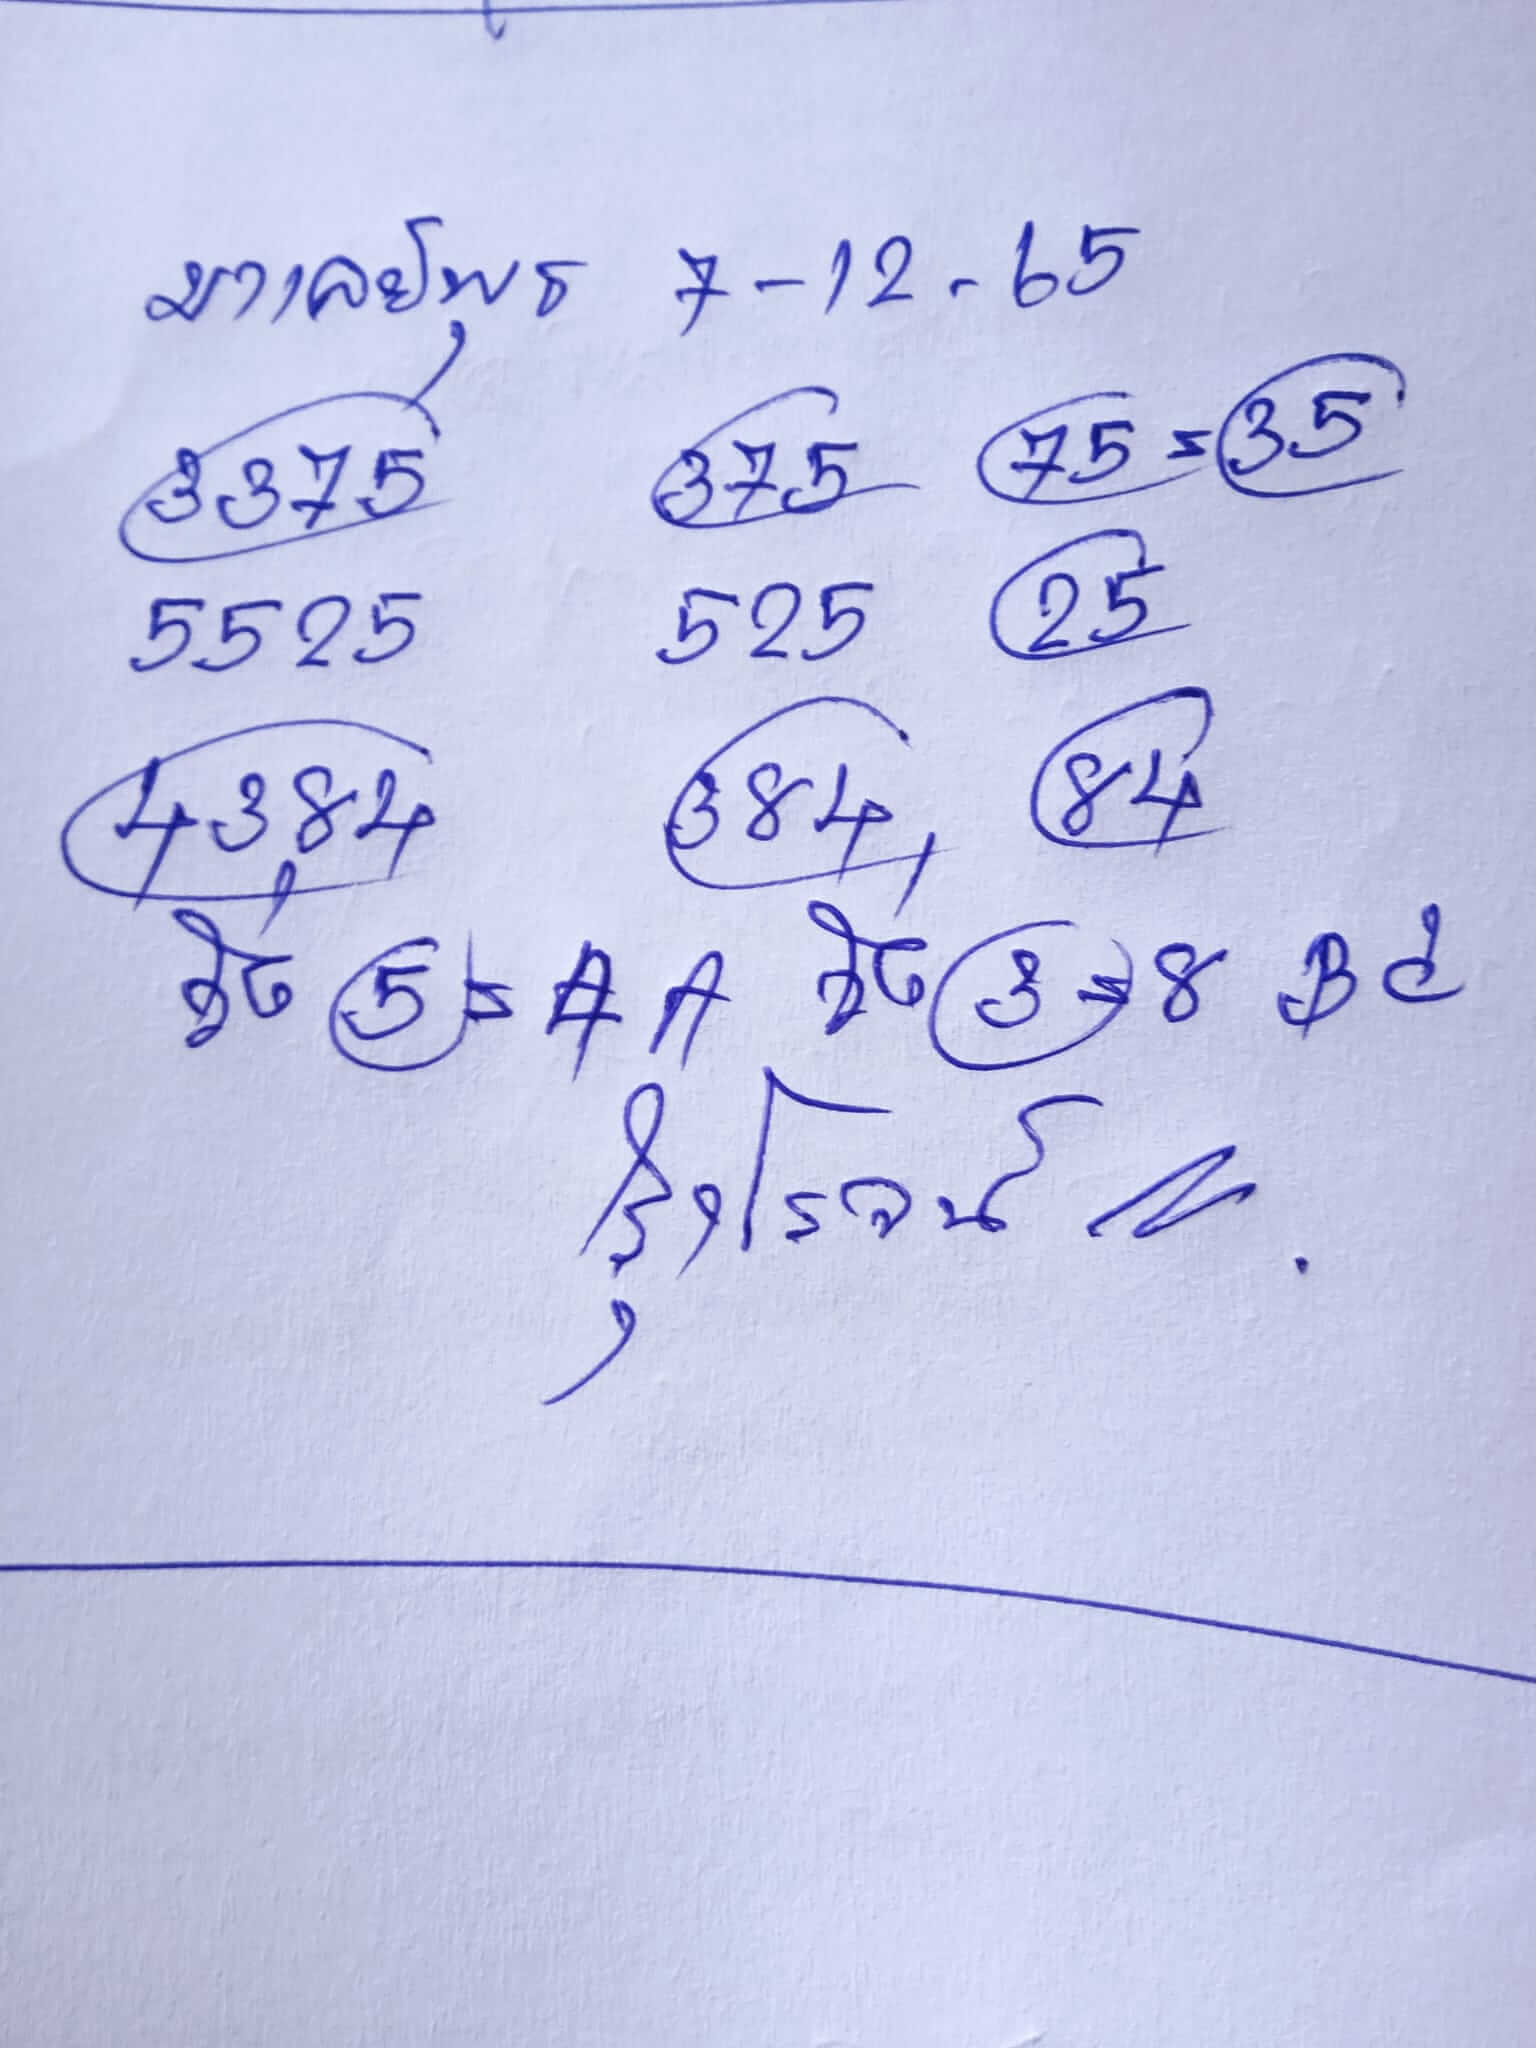 มาเลย์พุธ 7-12-65
3375 375 75=35
5525 525 25
4384 384 84
5= A A 3=8 B C
รุ่งโรจน์